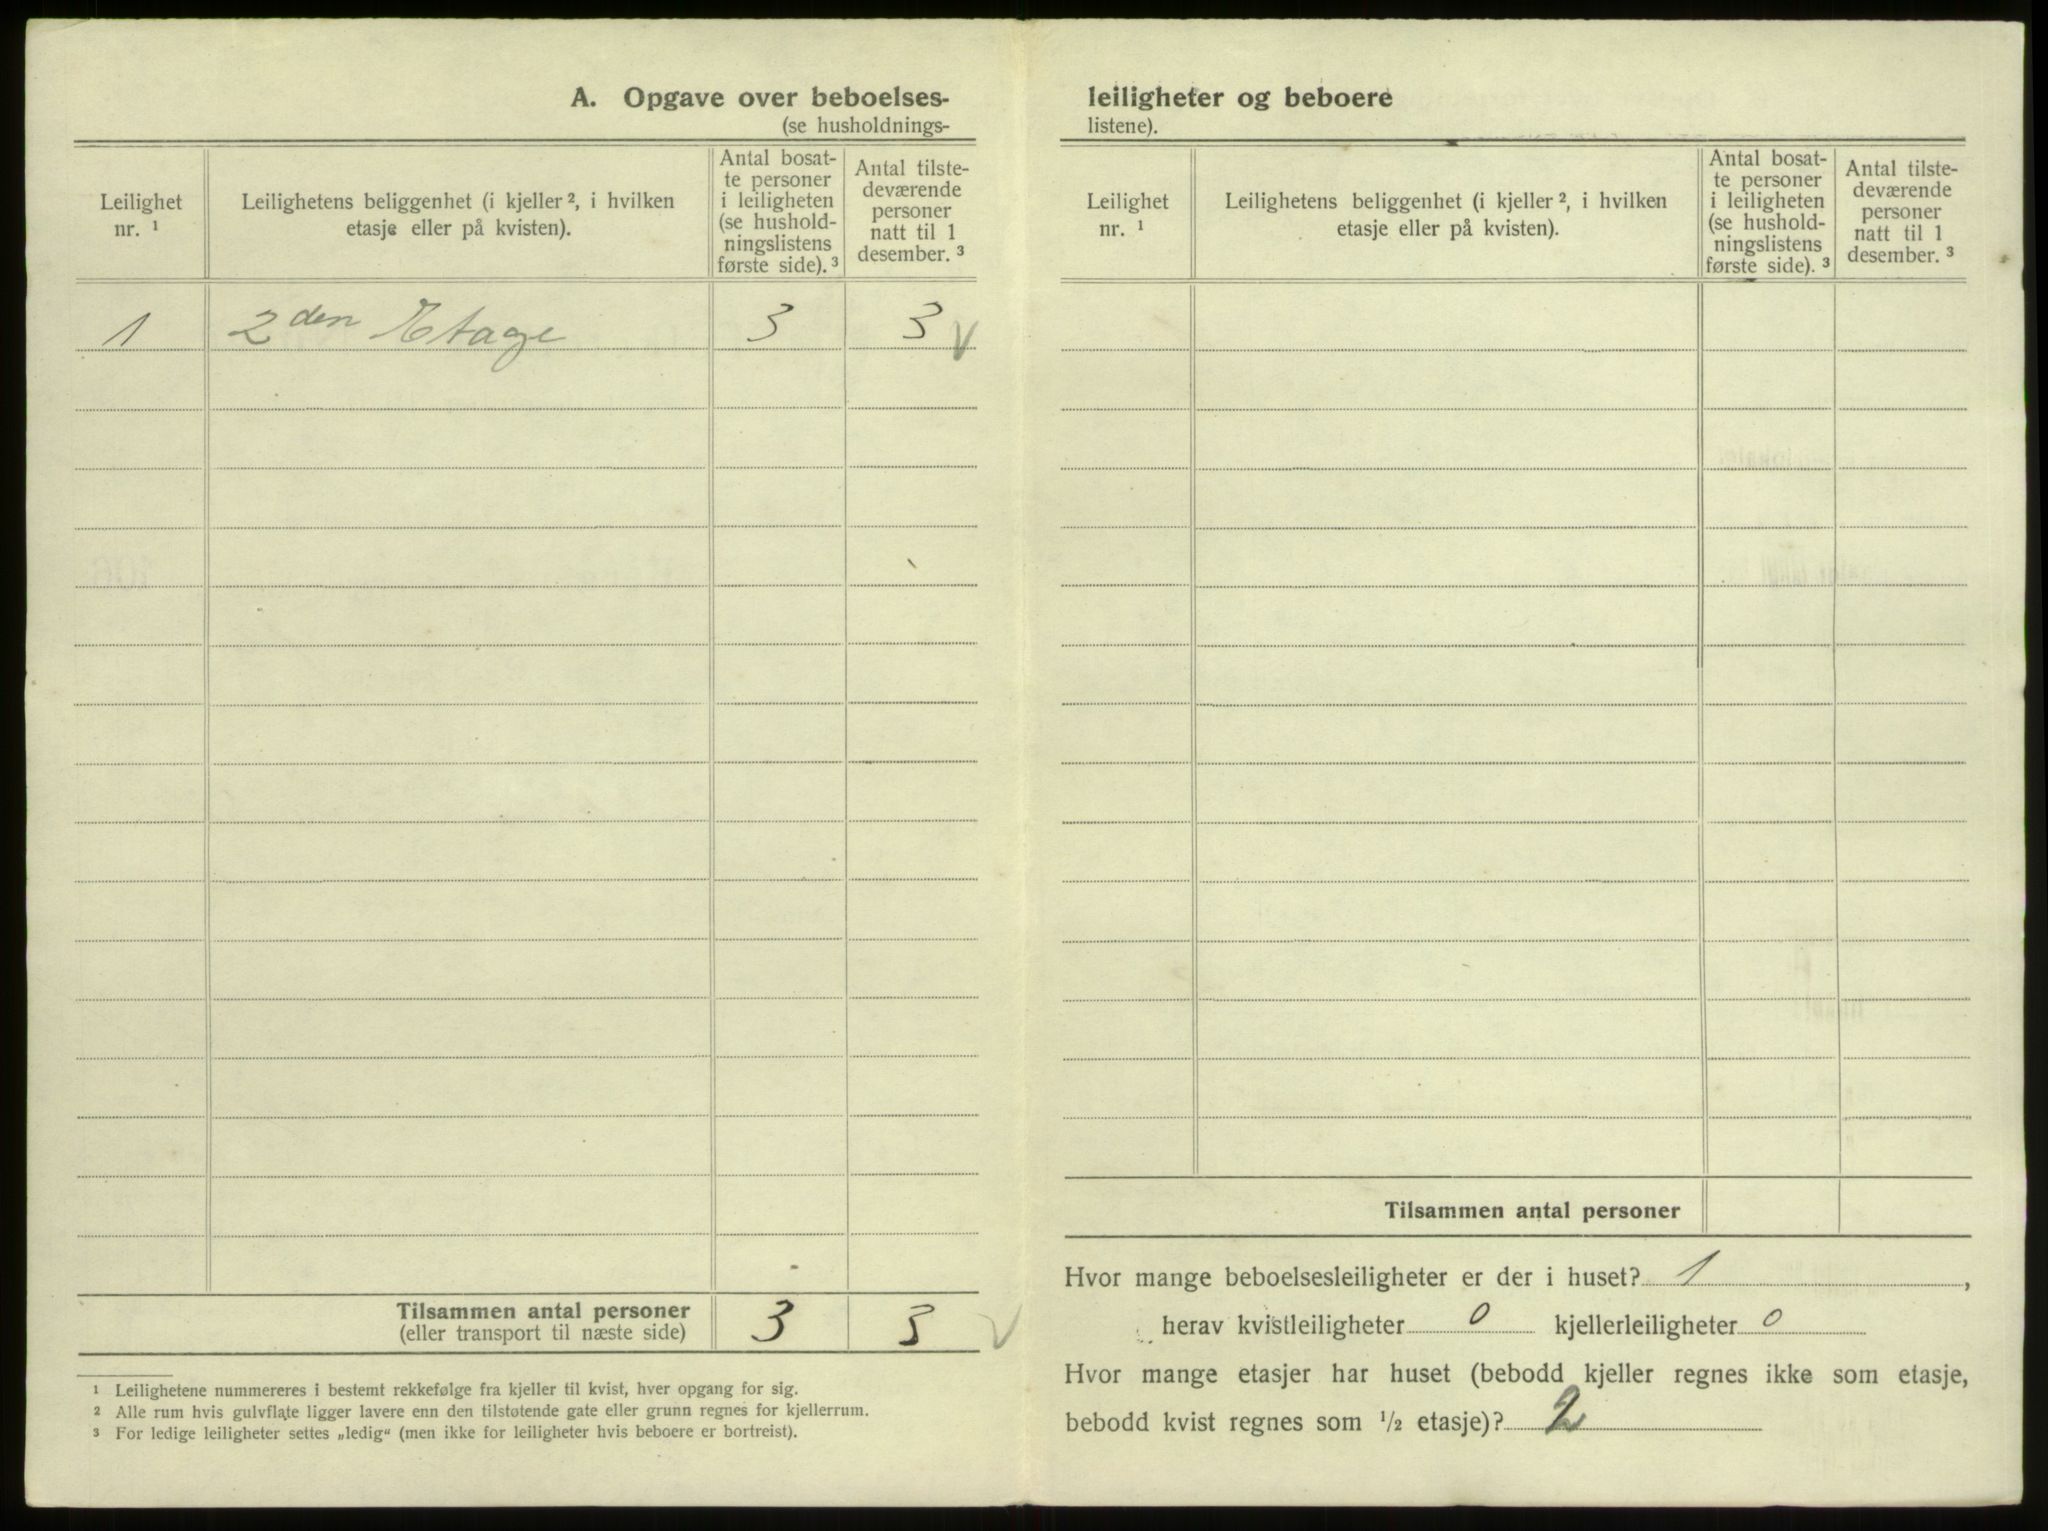 A. Opgave over beboelses-
(se husholdnings-
Leilighet nr. ¹
Leilighetens beliggenhet (i kjeller ², i hvilken
etasje eller på kvisten).
Antal bosat-
te personer
i leiligheten
(se hushold-
ningslistens
første side). ³
Antal tilste-
deværende
personer
natt til 1
desember. ³
1 2den Etage 3 3 √
Tilsammen antal personer
(eller transport til næste side)
3 3 √
¹ Leilighetene nummereres i bestemt rekkefølge fra kjeller til kvist, hver opgang for sig.
² Alle rum hvis gulvflate ligger lavere enn den tilstøtende gate eller grunn regnes for kjellerrum.
³ For ledige leiligheter settes „ledig“ (men ikke for leiligheter hvis beboere er bortreist).
leiligheter og beboere
listene).
Leilighet
nr. ¹
Leilighetens beliggenhet (i kjeller ², i hvilken
etasje eller på kvisten).
Antal bosat-
te personer
i leiligheten
(se hushold-
ningslistens
første side). ³
Antal tilste-
deværende
personer
natt til 1
desember. ³
Tilsammen antal personer
Hvor mange beboelsesleiligheter er der i huset? 1,
herav kvistleiligheter 0 kjellerleiligheter 0
Hvor mange etasjer har huset (bebodd kjeller regnes ikke som etasje,
bebodd kvist regnes som ½ etasje)? 2